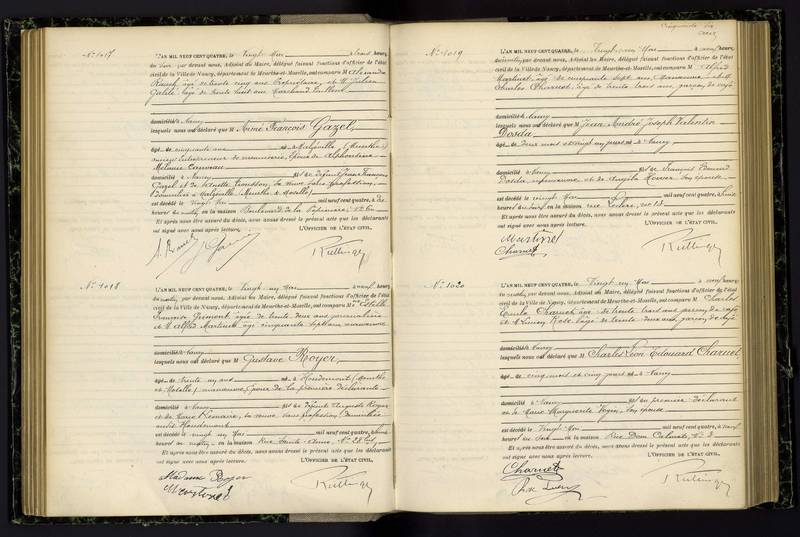 N° 1017
L'AN MIL NEUF CENT QUATRE, le Vingt Mai à trois heures
du soir par devant nous, Adjoint au Maire, délégué faisant fonctions d'officier de l'état
civil de la Ville de Nancy, département de Meurthe-et-Moselle, ont comparu M Alexandre
âgé de trente cinq ans Propriétaire, et M Julien
âgé de trente huit ans Marchand tailleur
domiciliés à Nancy
lesquels nous ont déclaré que M Aimé François Gazel,
âgé de cinquante ans né à (Meurthe)
ancien Entrepreneur de menuiserie, Epoux de Alphonsine
Mélanie
domicilié à Nancy fils de défunt Jean François
Gazel et de sa veuve sans profession,
domiciliée à (Meurthe et Moselle)
est décédé le Vingt Mai mil neuf cent quatre, à dix
heures du matin, en la maison Boulevard de la Pépinière, N°
Et après nous être assuré du décès, nous avons dressé le présent acte que les déclarants
ont signé avec nous après lecture. L'OFFICIER DE L'ÉTAT CIVIL,
N° 1018
L'AN MIL NEUF CENT QUATRE, le Vingt un Mai à neuf heures
du matin, par devant nous, Adjoint au Maire, délégué faisant fonctions d'officier de l'état
civil de la Ville de Nancy, département de Meurthe-et-Moselle, ont comparu M Estelle
Françoise âgée de trente deux ans journalière
et M Alfred Martinet âgé cinquante sept ans, manœuvre
domiciliés à Nancy
lesquels nous ont déclaré que M Gustave Royer,
âgé de trente un ans né à Houdemont (Meurthe
et Moselle) manœuvre, époux de la première déclarante
domicilié à Nancy fils de défunt Auguste Royer
et de Marie sa veuve, sans profession, domiciliée
audit Houdemont
est décédé le vingt un Mai mil neuf cent quatre, à
heures du matin, en la maison Rue Sainte Anne, N° 28 bis,
Et après nous être assuré du décès, nous avons dressé le présent acte que les déclarants
ont signé avec nous après lecture. L'OFFICIER DE L'ÉTAT CIVIL,
Madame Royer
Martinet
N° 1019
L'AN MIL NEUF CENT QUATRE, le Vingt un Mai à neuf heures
du matin, par devant nous, Adjoint au Maire, délégué faisant fonctions d'officier de l'état
civil de la Ville de Nancy, département de Meurthe-et-Moselle, ont comparu M Alfred
Martinet âgé de cinquante sept ans, Manœuvre et M
Charles Charuet âgé de trente trois ans, garçon de café
domiciliés à Nancy
lesquels nous ont déclaré que M Jean André Joseph Valentin
Dosda
âgé de deux mois et vingt un jours né à Nancy
domicilié à Nancy fils de François Edmond
Dosda, et de Angèle son épouse
est décédé le vingt Mai mil neuf cent quatre, à
heures du soir en la maison rue Leclerc, N° 13
Et après nous être assuré du décès, nous avons dressé le présent acte que les déclarants
ont signé avec nous après lecture. L'OFFICIER DE L'ÉTAT CIVIL,
Martinet
Charuet
N° 1020
L'AN MIL NEUF CENT QUATRE, le Vingt un Mai à neuf heures
du matin, par devant nous, Adjoint au Maire, délégué faisant fonctions d'officier de l'état
civil de la Ville de Nancy, département de Meurthe-et-Moselle, ont comparu M Charles
Emile Charuet âgé de trente trois ans garçon de café
et M Lucien Rose âgé de trente deux ans, garçon de café
domiciliés à Nancy
lesquels nous ont déclaré que M Charles Léon Edouard Charuet
âgé de cinq mois et cinq jours né à Nancy
domicilié à Nancy fils du premier déclarant
et de Marie Marguerite son épouse
est décédé le Vingt Mai mil neuf cent quatre, à
heures du soir en la maison Rue Dom Calmet, N° 3
Et après nous être assuré du décès, nous avons dressé le présent acte que les déclarants
ont signé avec nous après lecture. L'OFFICIER DE L'ÉTAT CIVIL,
Charuet